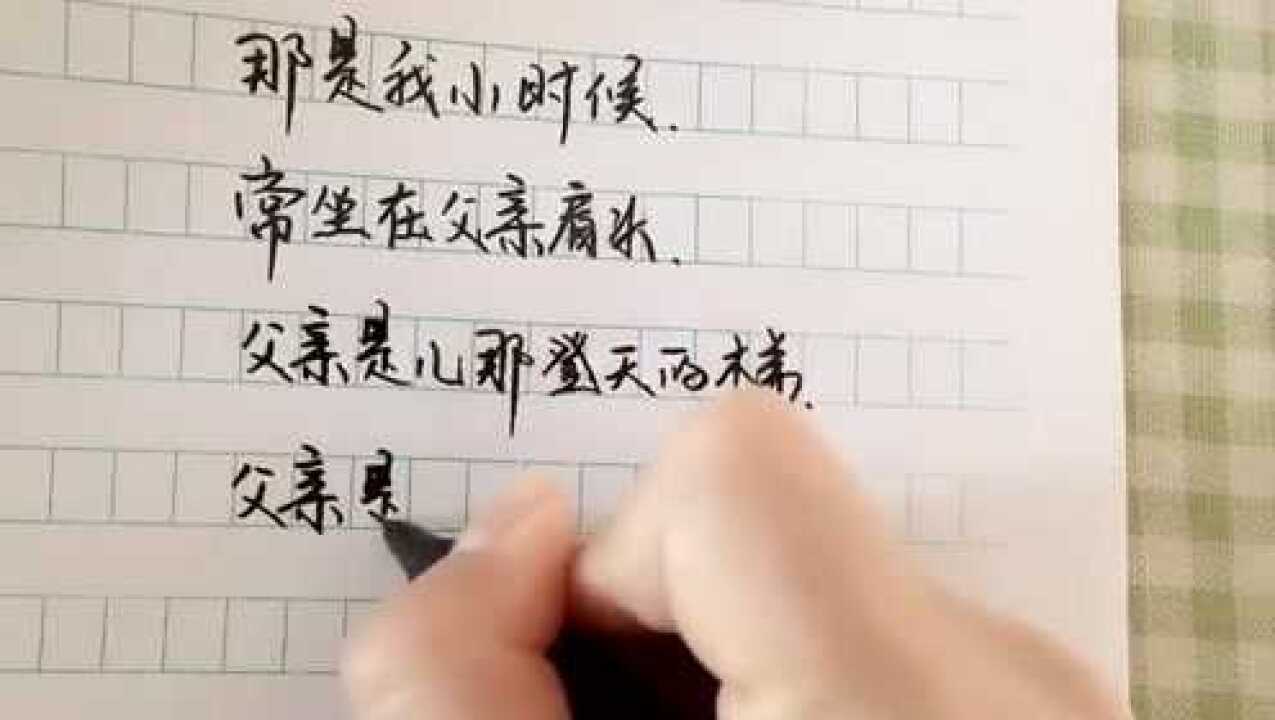 那是我小时候.
常坐在父亲肩头.
父亲是儿那登天的梯.
父亲是